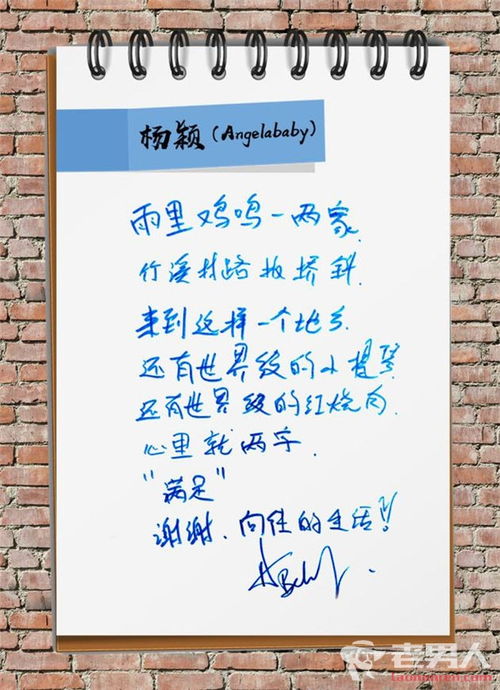 杨颖（Angelababy）
雨里鸡鸣一两家
竹溪村路板桥斜.
来到这样一个地方
还有世界级的小提琴
还有世界级的红烧肉.
心里就两字.
"满足"
谢谢.向往的生活!!
老男人
laonanren.com